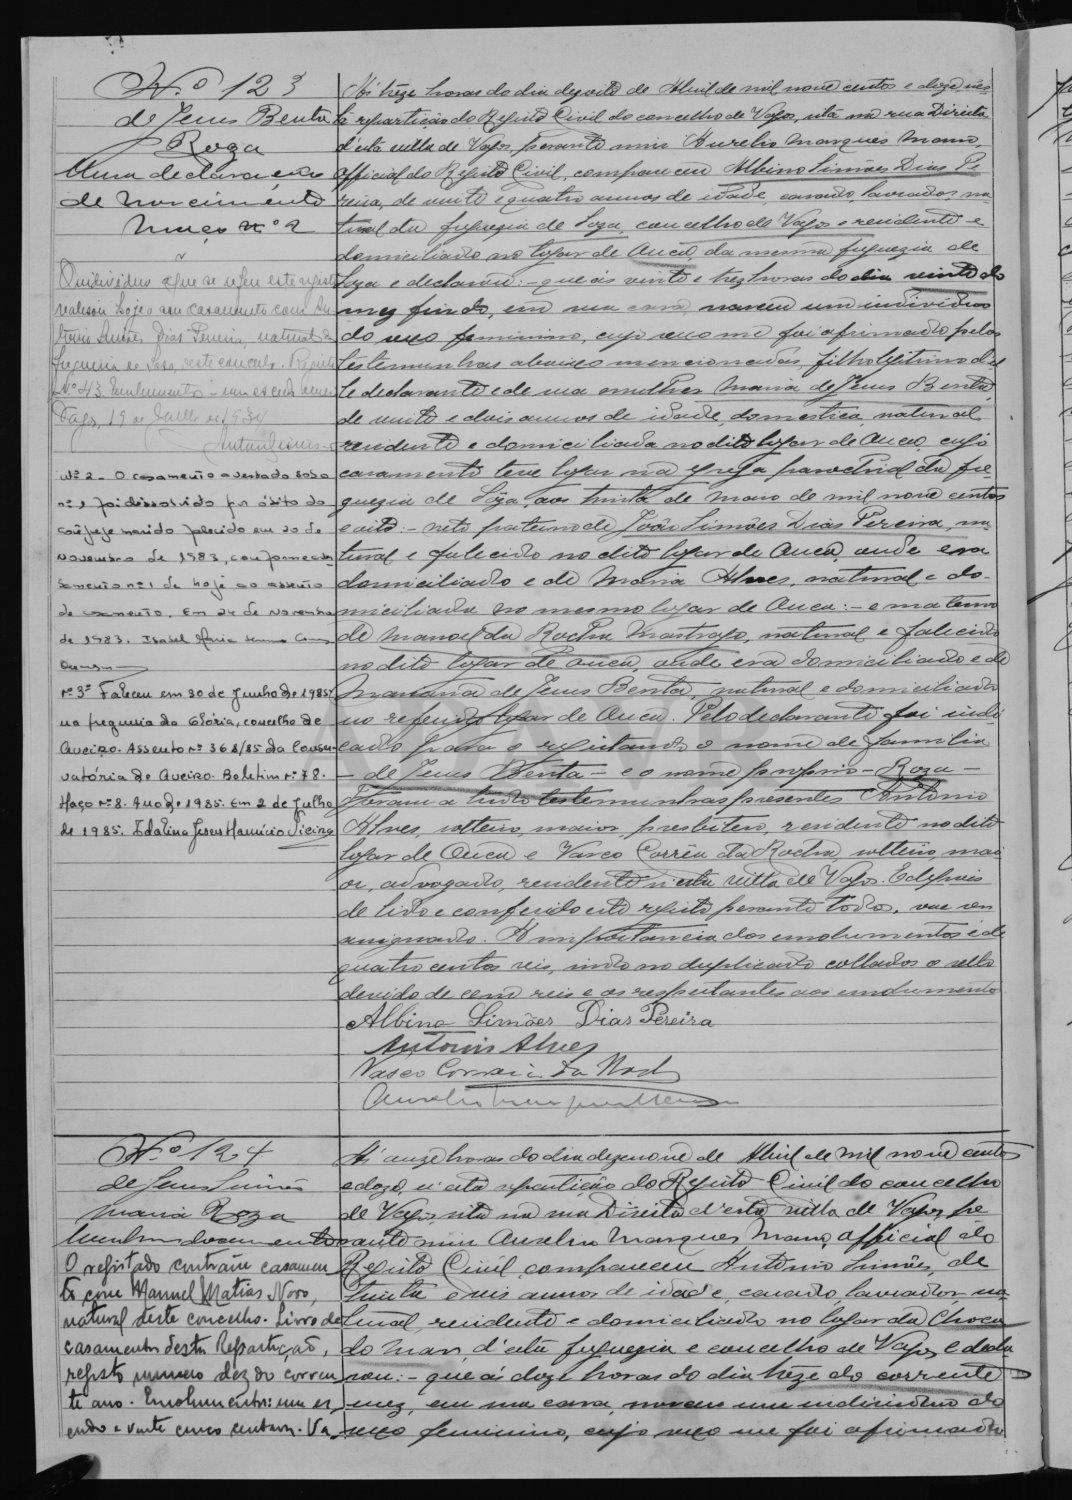 N.º 123
de Jesus Benta
Roza
Uma declaração
de nascimento
Maço nº 2
O individuo a que se refere este registo
realisou hoje o seu casamento com An-
tonio Simões Dias Pereira, natural da
freguesia de Soza, deste concelho. Registo
Nº 43. Emolumento: um escudo
Vagos, 19 de de 1934
Nº 2 - O casamento averbado sob o
nº 1 foi dissolvido por óbito do
cônjuge marido falecido em 20 de
novembro de 1983, conforme aver-
bamento nº 1 de hoje ao assento
de casamento. Em 24 de Novembro
de 1983. Isabel Maria
Nº 3º Faleceu em 30 de Junho de 1985
na freguesia da Glória, concelho de
Aveiro. Assento nº 368/85 da Conser-
vatória de Aveiro. Boletim nº 78.
Maço nº 8. Ano de 1985. Em 2 de Julho
de 1985. Idalina Jesus Maurício Vieira
Ás trêze horas do dia dezoito de Abril de mil nove centos e doze nes-
ta repartição do Registo Civil do concelho de Vagos, sita na rua Direita
d'esta villa de Vagos, perante mim Aurelio Marques Mano,
official do Registo Civil, compareceu Albino Simões Dias Pe-
reira, de vinte e quatro annos de idade, casado, lavrador, na-
tural da freguezia de Soza, concelho de Vagos e residente e
domiciliado no logar de Ouca, da mesma freguezia de
Soza e declarou: - que ás vinte e trez horas do dia vinte do
mez findo, em sua casa nasceu um individuo
do sexo feminino, cujo sexo me foi afirmado pelas
testemunhas abaixo mencionadas, filho legitimo d'el-
le declarante e de sua mulher Maria de Jesus Benta,
de vinte e dois annos de idade, domestica, natural
residente e domiciliada no dito logar de Ouca, cujo
casamento teve logar na egreja parochial da fre-
guezia de Soza, aos trinta de Maio de mil nove centos
e oito: - neto paterno de João Simões Dias Pereira, na-
tural e falecido no dito logar de Ouca, onde era
domiciliado e de Maria Alves, natural e do-
miciliada no mesmo logar de Ouca: - e materno
de Manoel da Rocha Mastrago, natural e falecido
no dito logar de Ouca, onde era domiciliado e de
Marianna de Jesus Benta, natural e domiciliada
no referido logar de Ouca. Pelo declarante foi indi-
cado para o registando o nome de familia
- de Jesus Benta - e o nome proprio - Roza -
Foram a tudo testemunhas presentes Antonio
Alves, solteiro, maior, presbitero, residente no dito
logar de Ouca e Vasco Corrêa da Rocha, solteiro, mai-
or, advogado, residente n'esta villa de Vagos. E depois
de lido e conferido este registo perante todos, vae ser
assignado. A importancia dos emolumentos é de
quatro centos reis, indo no duplicado collados o sello
devido de cem reis e os respeitantes aos emolumentos
Albino Simões Dias Pereira
Antonio Alves
Vasco Correia da Rocha
Aurelio Marques Mano
ADAVP
N.º 124
de Jesus Simões
Maria Roza
Nenhum documento
O registado contraiu casamen-
to com Manuel Matias Novo,
natural deste concelho. Livro de
casamentos desta Repartição,
registo numero dez do corren-
te ano. Emolumentos: um es-
cudo e vinte cinco centavos. Va-
Ás onze horas do dia dezenove de Abril de mil nove centos
e doze, n'esta repartição do Registo Civil do concelho
de Vagos, sita na rua Direita d'esta villa de Vagos pe-
rante mim Aurelio Marques Mano, official do
Registo Civil, compareceu Antonio Simões, de
trinta e seis annos de idade, casado, lavrador, na-
tural, residente e domiciliado no logar da Choca
do Mar, d'esta freguezia e concelho de Vagos e decla-
rou: - que ás doze horas do dia trêze do corrente
mez, em sua casa, nasceu um individuo do
sexo feminino, cujo sexo me foi afirmado